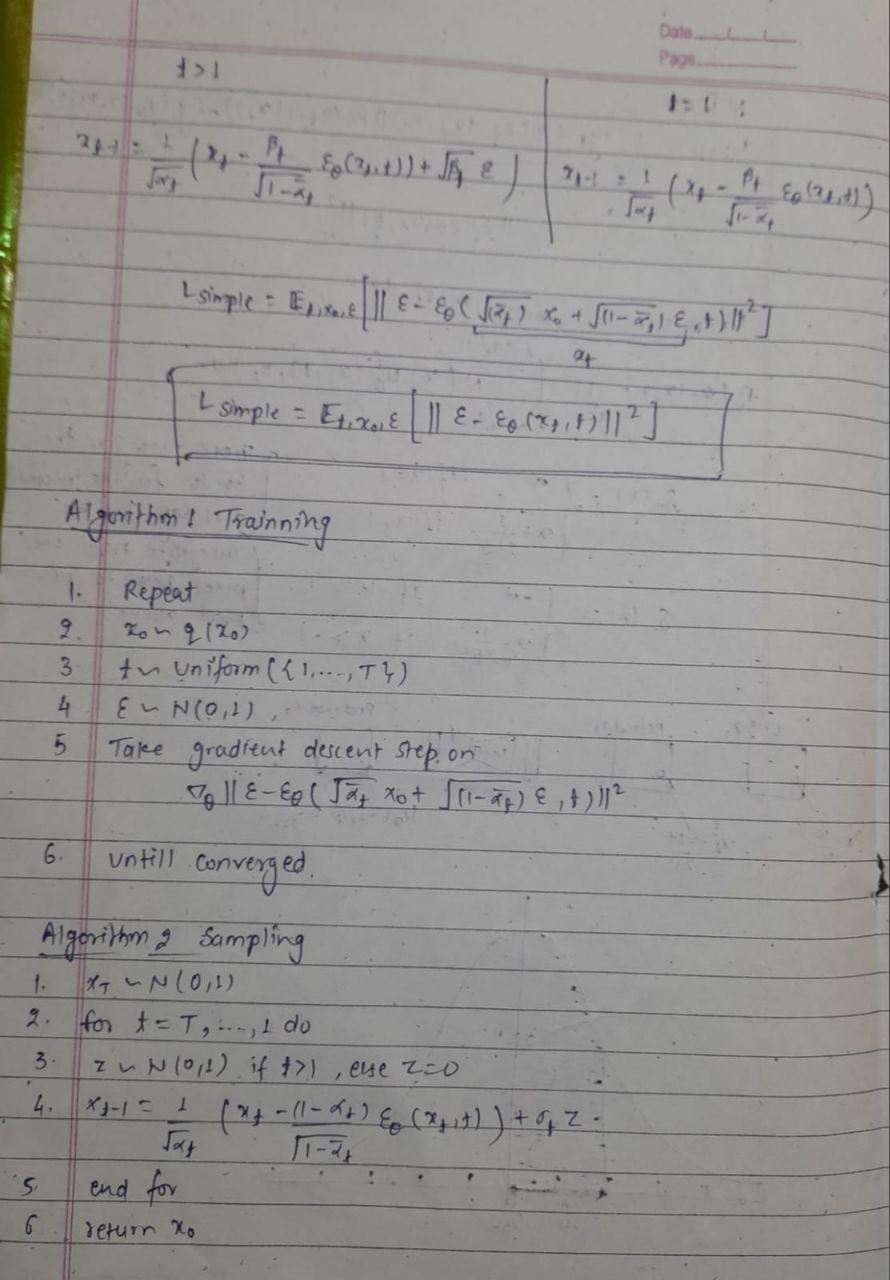 Date
Page
t>1
t=1 :
x_{t-1} = 1/√α_t (x_t - β_t/√1-ᾱ_t ε_θ(x_t,t)) + √β_t ε )
x_{t-1} = 1/√α_t (x_t - β_t/√1-ᾱ_t ε_θ(x_t,t))
L simple = E_{t,x_0,ε} [|| ε - ε_θ ( √(ᾱ_t) x_0 + √(1-ᾱ_t) ε, t) ||²]
x_t
L simple = E_{t,x_0,ε} [|| ε - ε_θ (x_t,t) ||²]
Algorithm 1 Trainning
1. Repeat
2. x_0 ~ q(x_0)
3 t ~ Uniform({1,...,T})
4 ε ~ N(0,1),
5 Take gradient descent step on
∇_θ || ε - ε_θ ( √ᾱ_t x_0 + √(1-ᾱ_t) ε, t) ||²
6. untill converged.
Algorithm 2 Sampling
1. x_T ~ N(0,1)
2. for t = T,...,1 do
3. z ~ N(0,1) if t>1, else z=0
4. x_{t-1} = 1/√α_t (x_t - (1-α_t)/√1-ᾱ_t ε_θ (x_t,t)) + σ_t z.
5. end for
6 return x_0